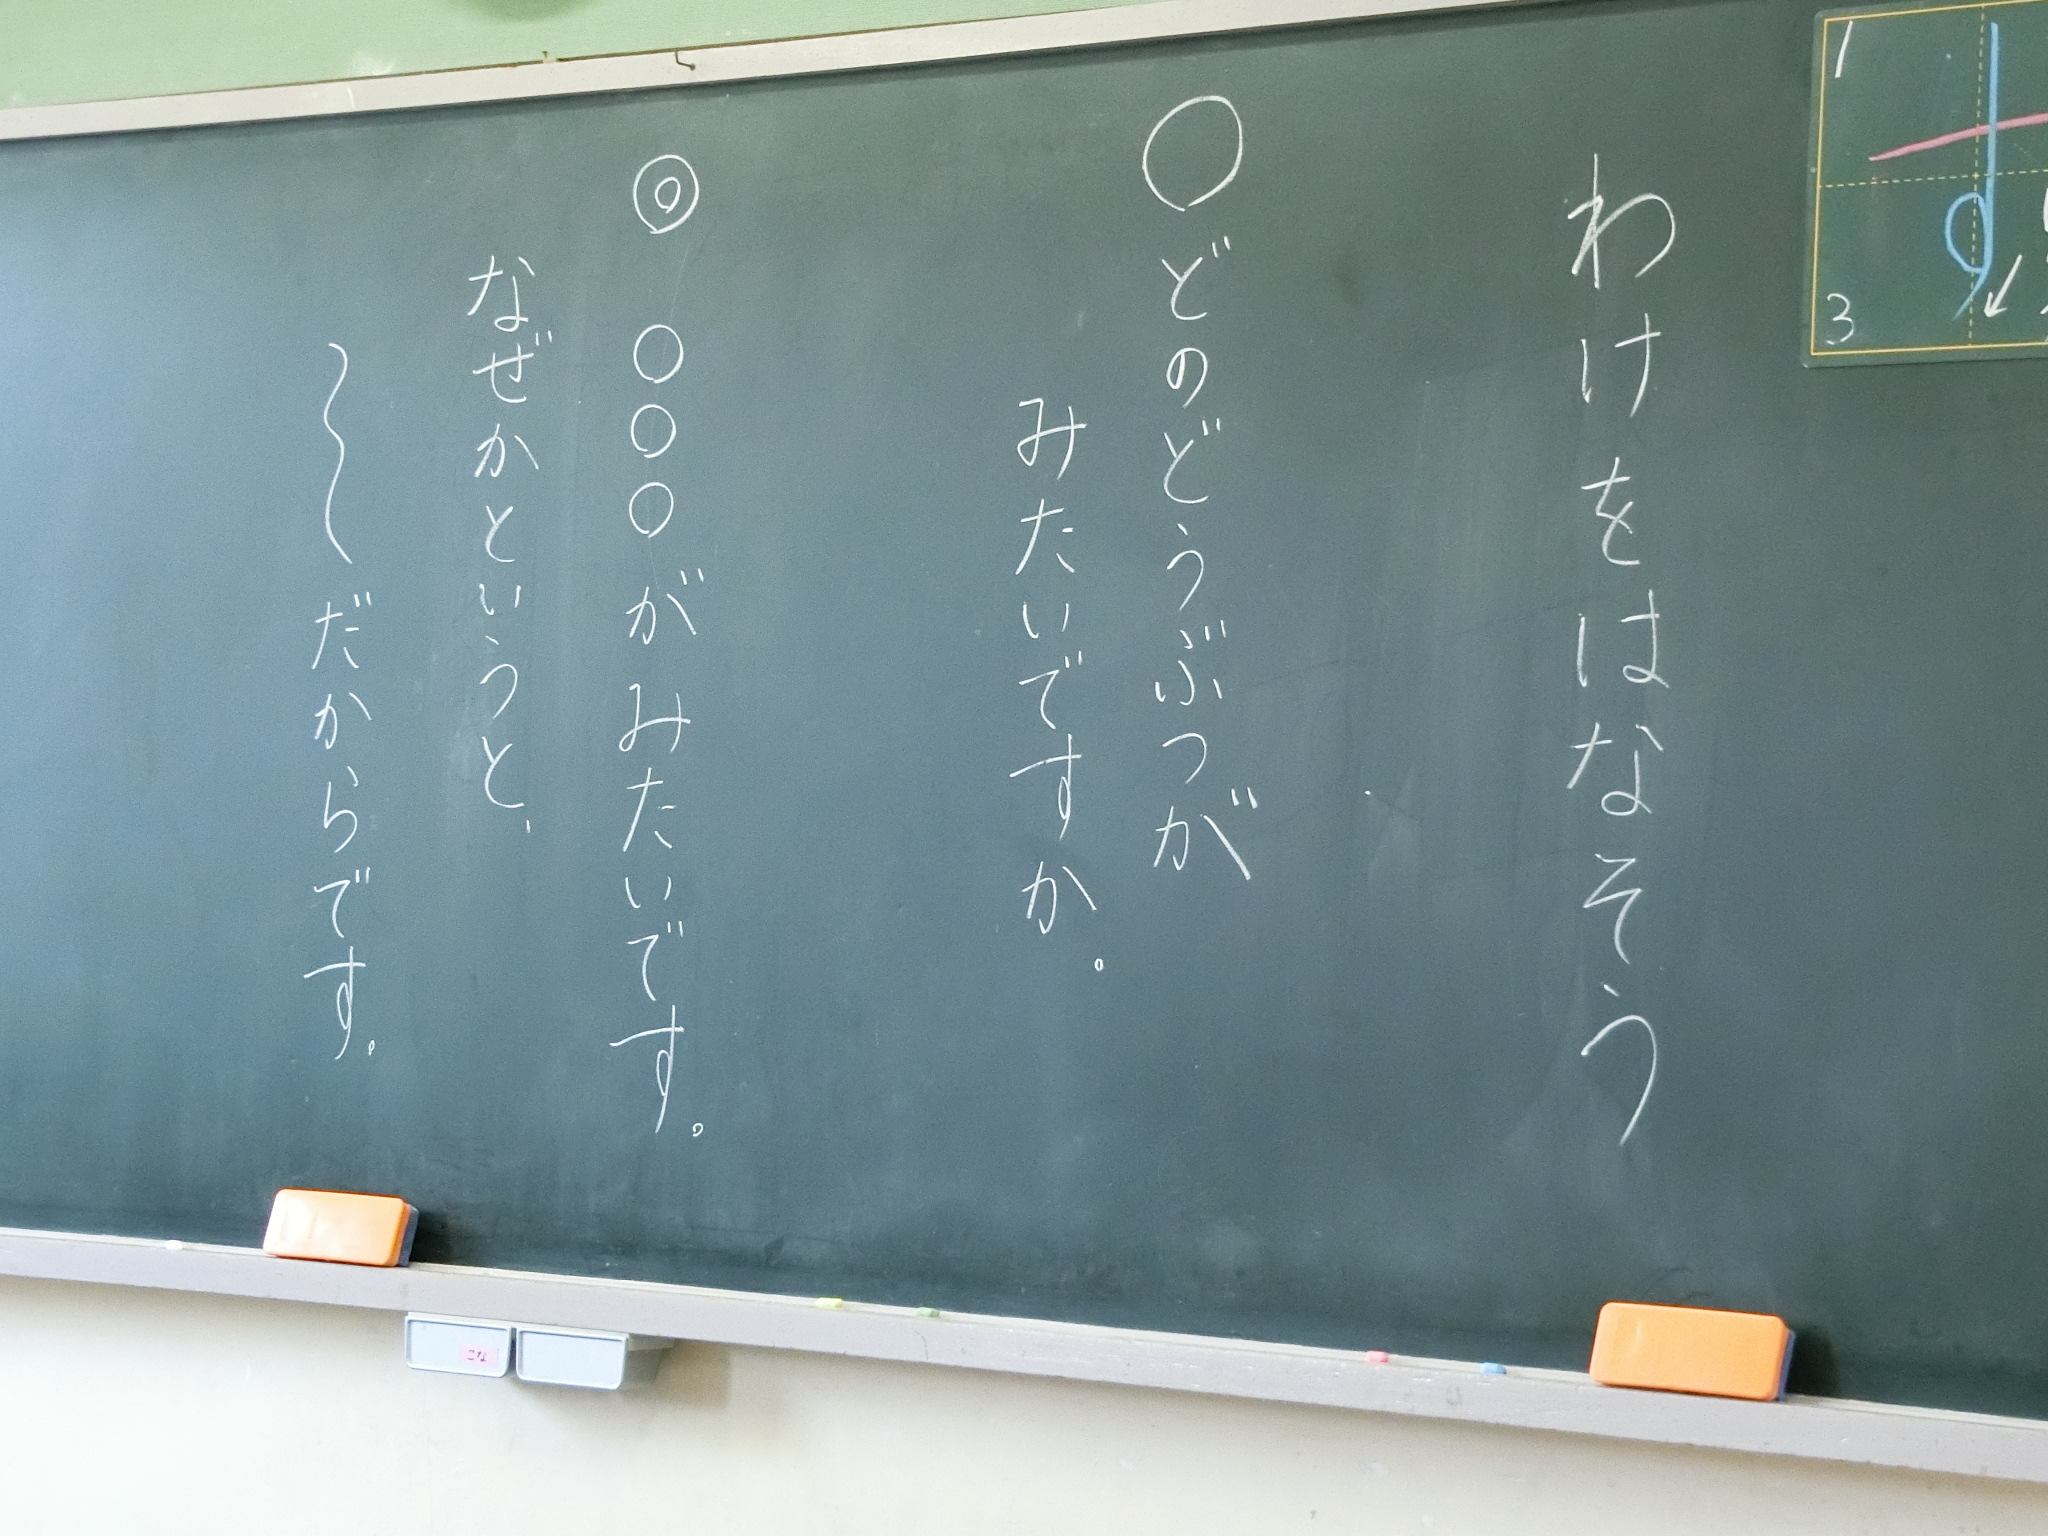 わけをはなそう
○どのどうぶつが
みたいですか。
◎ ○○○がみたいです。
なぜかというと、
～だからです。
1
3